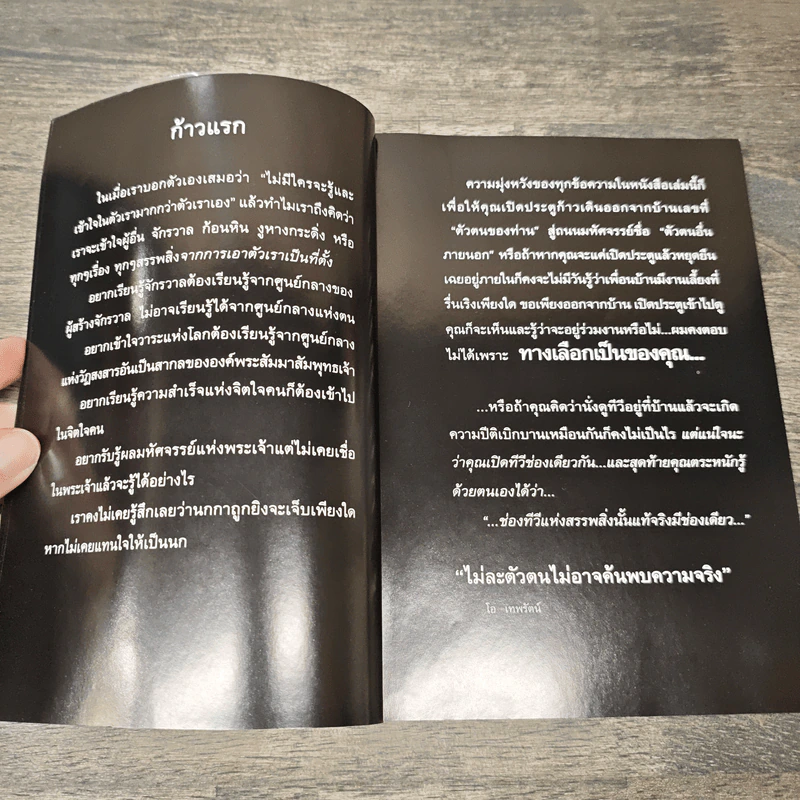 ก้าวแรก
ในเมื่อเราบอกตัวเองเสมอว่า “ไม่มีใครจะรู้และ
เข้าใจในตัวเรามากกว่าตัวเราเอง” แล้วทำไมเราถึงคิดว่า
เราจะเข้าใจผู้อื่น จักรวาล ก้อนหิน งูหางกระดิ่ง หรือ
ทุกๆเรื่อง ทุกๆสรรพสิ่งจากการเอาตัวเราเป็นที่ตั้ง
อยากเรียนรู้จักรวาลต้องเรียนรู้จากศูนย์กลางของ
ผู้สร้างจักรวาล ไม่อาจเรียนรู้ได้จากศูนย์กลางแห่งตน
อยากเข้าใจวาระแห่งโลกต้องเรียนรู้จากศูนย์กลาง
แห่งวัฏสงสารอันเป็นสากลขององค์พระสัมมาสัมพุทธเจ้า
อยากเรียนรู้ความสำเร็จแห่งจิตใจคนก็ต้องเข้าไป
ในจิตใจคน
อยากรับรู้ผลมหัศจรรย์แห่งพระเจ้าแต่ไม่เคยเชื่อ
ในพระเจ้าแล้วจะรู้ได้อย่างไร
เราคงไม่เคยรู้สึกเลยว่านกกาถูกยิงจะเจ็บเพียงใด
หากไม่เคยแทนใจให้เป็นนก
ความมุ่งหวังของทุกข้อความในหนังสือเล่มนี้ก็
เพื่อให้คุณเปิดประตูก้าวเดินออกจากบ้านเลขที่
“ตัวตนของท่าน” สู่ถนนมหัศจรรย์ชื่อ “ตัวตนอื่น
ภายนอก” หรือถ้าหากคุณจะแค่เปิดประตูแล้วหยุดยืน
เฉยอยู่ภายในก็คงจะไม่มีวันรู้ว่าเพื่อนบ้านมีงานเลี้ยงที่
รื่นเริงเพียงใด ขอเพียงออกจากบ้าน เปิดประตูเข้าไปดู
คุณก็จะเห็นและรู้ว่าจะอยู่ร่วมงานหรือไม่...ผมคงตอบ
ไม่ได้เพราะ ทางเลือกเป็นของคุณ...
...หรือถ้าคุณคิดว่านั่งดูทีวีอยู่ที่บ้านแล้วจะเกิด
ความปีติเบิกบานเหมือนกันก็คงไม่เป็นไร แต่แน่ใจนะ
ว่าคุณเปิดทีวีช่องเดียวกัน...และสุดท้ายคุณตระหนักรู้
ด้วยตนเองได้ว่า...
“...ช่องทีวีแห่งสรรพสิ่งนั้นแท้จริงมีช่องเดียว...”
“ไม่ละตัวตนไม่อาจค้นพบความจริง”
โอ เทพรัตน์